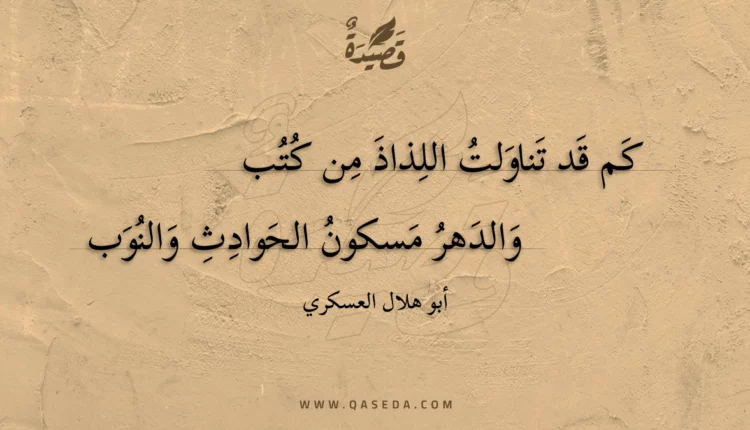 قَصيدَةٌ
كَم قَد تَناوَلتُ اللِذاذَ مِن كُتُب
وَالدَهرُ مَسكونُ الحَوادِثِ وَالنُوَب
أبو هلال العسكري
WWW.QASEDA.COM